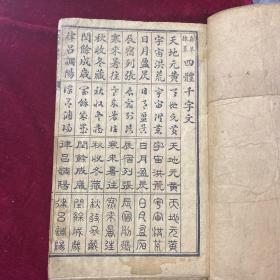 真草隸篆四體千字文
天地元黃 天地元黃 天地元黃 天地元黃
宇宙洪荒 宇宙洪荒 宇宙洪荒 宇宙洪荒
日月盈昃 日月盈昃 日月盈昃 日月盈昃
辰宿列張 辰宿列張 辰宿列張 辰宿列張
寒來暑往 寒來暑往 寒來暑往 寒來暑往
秋收冬藏 秋收冬藏 秋收冬藏 秋收冬藏
閏餘成歲 閏餘成歲 閏餘成歲 閏餘成歲
律呂調陽 律呂調陽 律呂調陽 律呂調陽